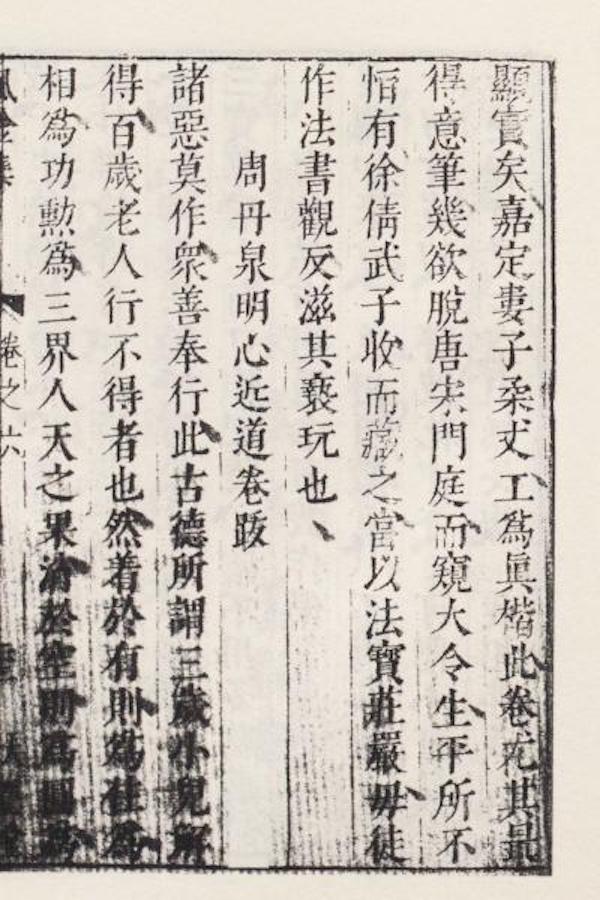 顯實矣嘉定婁子柔丈工為眞楷此卷尤其最
得意筆幾欲脫唐宋門庭而窺大令生平所不
恒有徐倩武子收而藏之當以法寶莊嚴毋徒
作法書觀反滋其褻玩也
周丹泉明心近道卷跋
諸惡莫作衆善奉行此古德所謂三歲小兒解
得百歲老人行不得者也然着於有則為
相為功勳為三界人天之果於空則為
卷之六